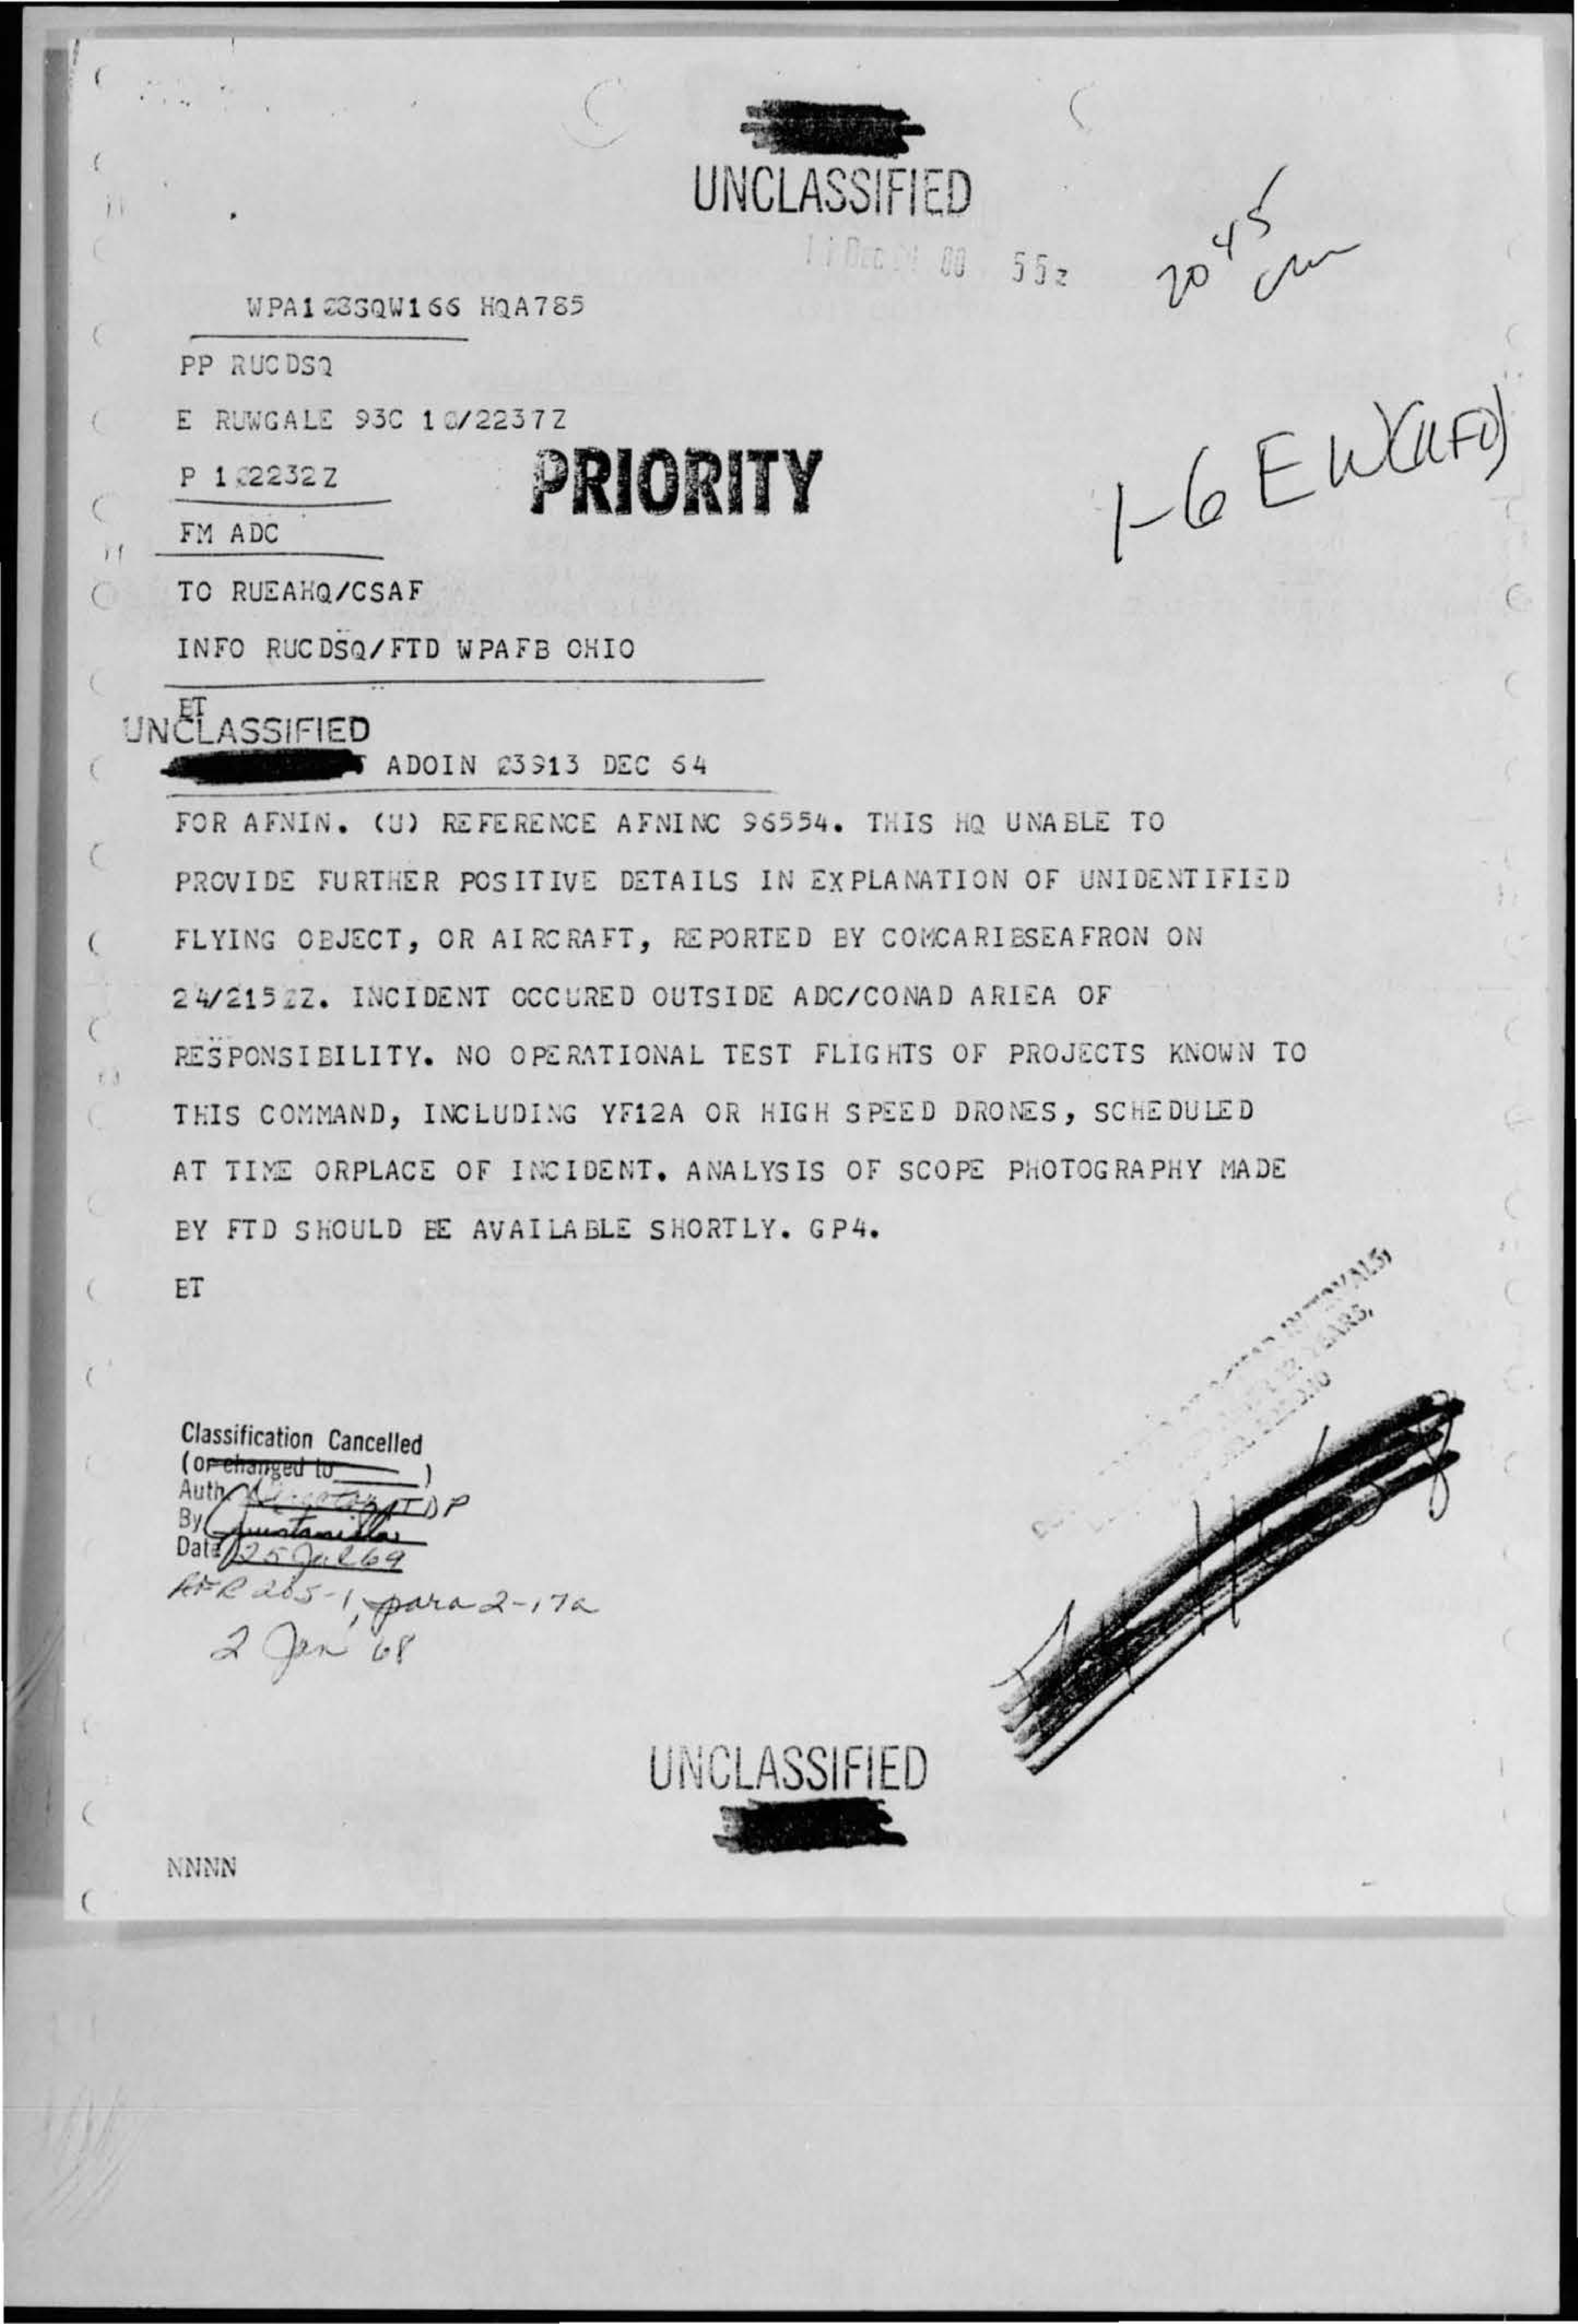 UNCLASSIFIED
11 Dec 00 55z
2045
WPA123SQW166 HQA785
PP RUCDSQ
E RUWGALE 93C 10/2237Z
P 102232Z
PRIORITY
1-6 EW(UFO)
FM ADC
TO RUEAHQ/CSAF
INFO RUCDSQ/FTD WPAFB OHIO
BT
UNCLASSIFIED
ADOIN 23913 DEC 64
FOR AFNIN. (U) REFERENCE AFNINC 96554. THIS HQ UNABLE TO
PROVIDE FURTHER POSITIVE DETAILS IN EXPLANATION OF UNIDENTIFIED
FLYING OBJECT, OR AIRCRAFT, REPORTED BY COMCARIBSEAFRON ON
24/2152Z. INCIDENT OCCURED OUTSIDE ADC/CONAD ARIEA OF
RESPONSIBILITY. NO OPERATIONAL TEST FLIGHTS OF PROJECTS KNOWN TO
THIS COMMAND, INCLUDING YF12A OR HIGH SPEED DRONES, SCHEDULED
AT TIME ORPLACE OF INCIDENT. ANALYSIS OF SCOPE PHOTOGRAPHY MADE
BY FTD SHOULD BE AVAILABLE SHORTLY. GP4.
BT
YEARS,
Classification Cancelled
(or changed to )
Auth TDP
By Quintanilla
Date 25 Jul 69
AFR 205-1, para 2-17a
2 Jan 68
UNCLASSIFIED
NNNN